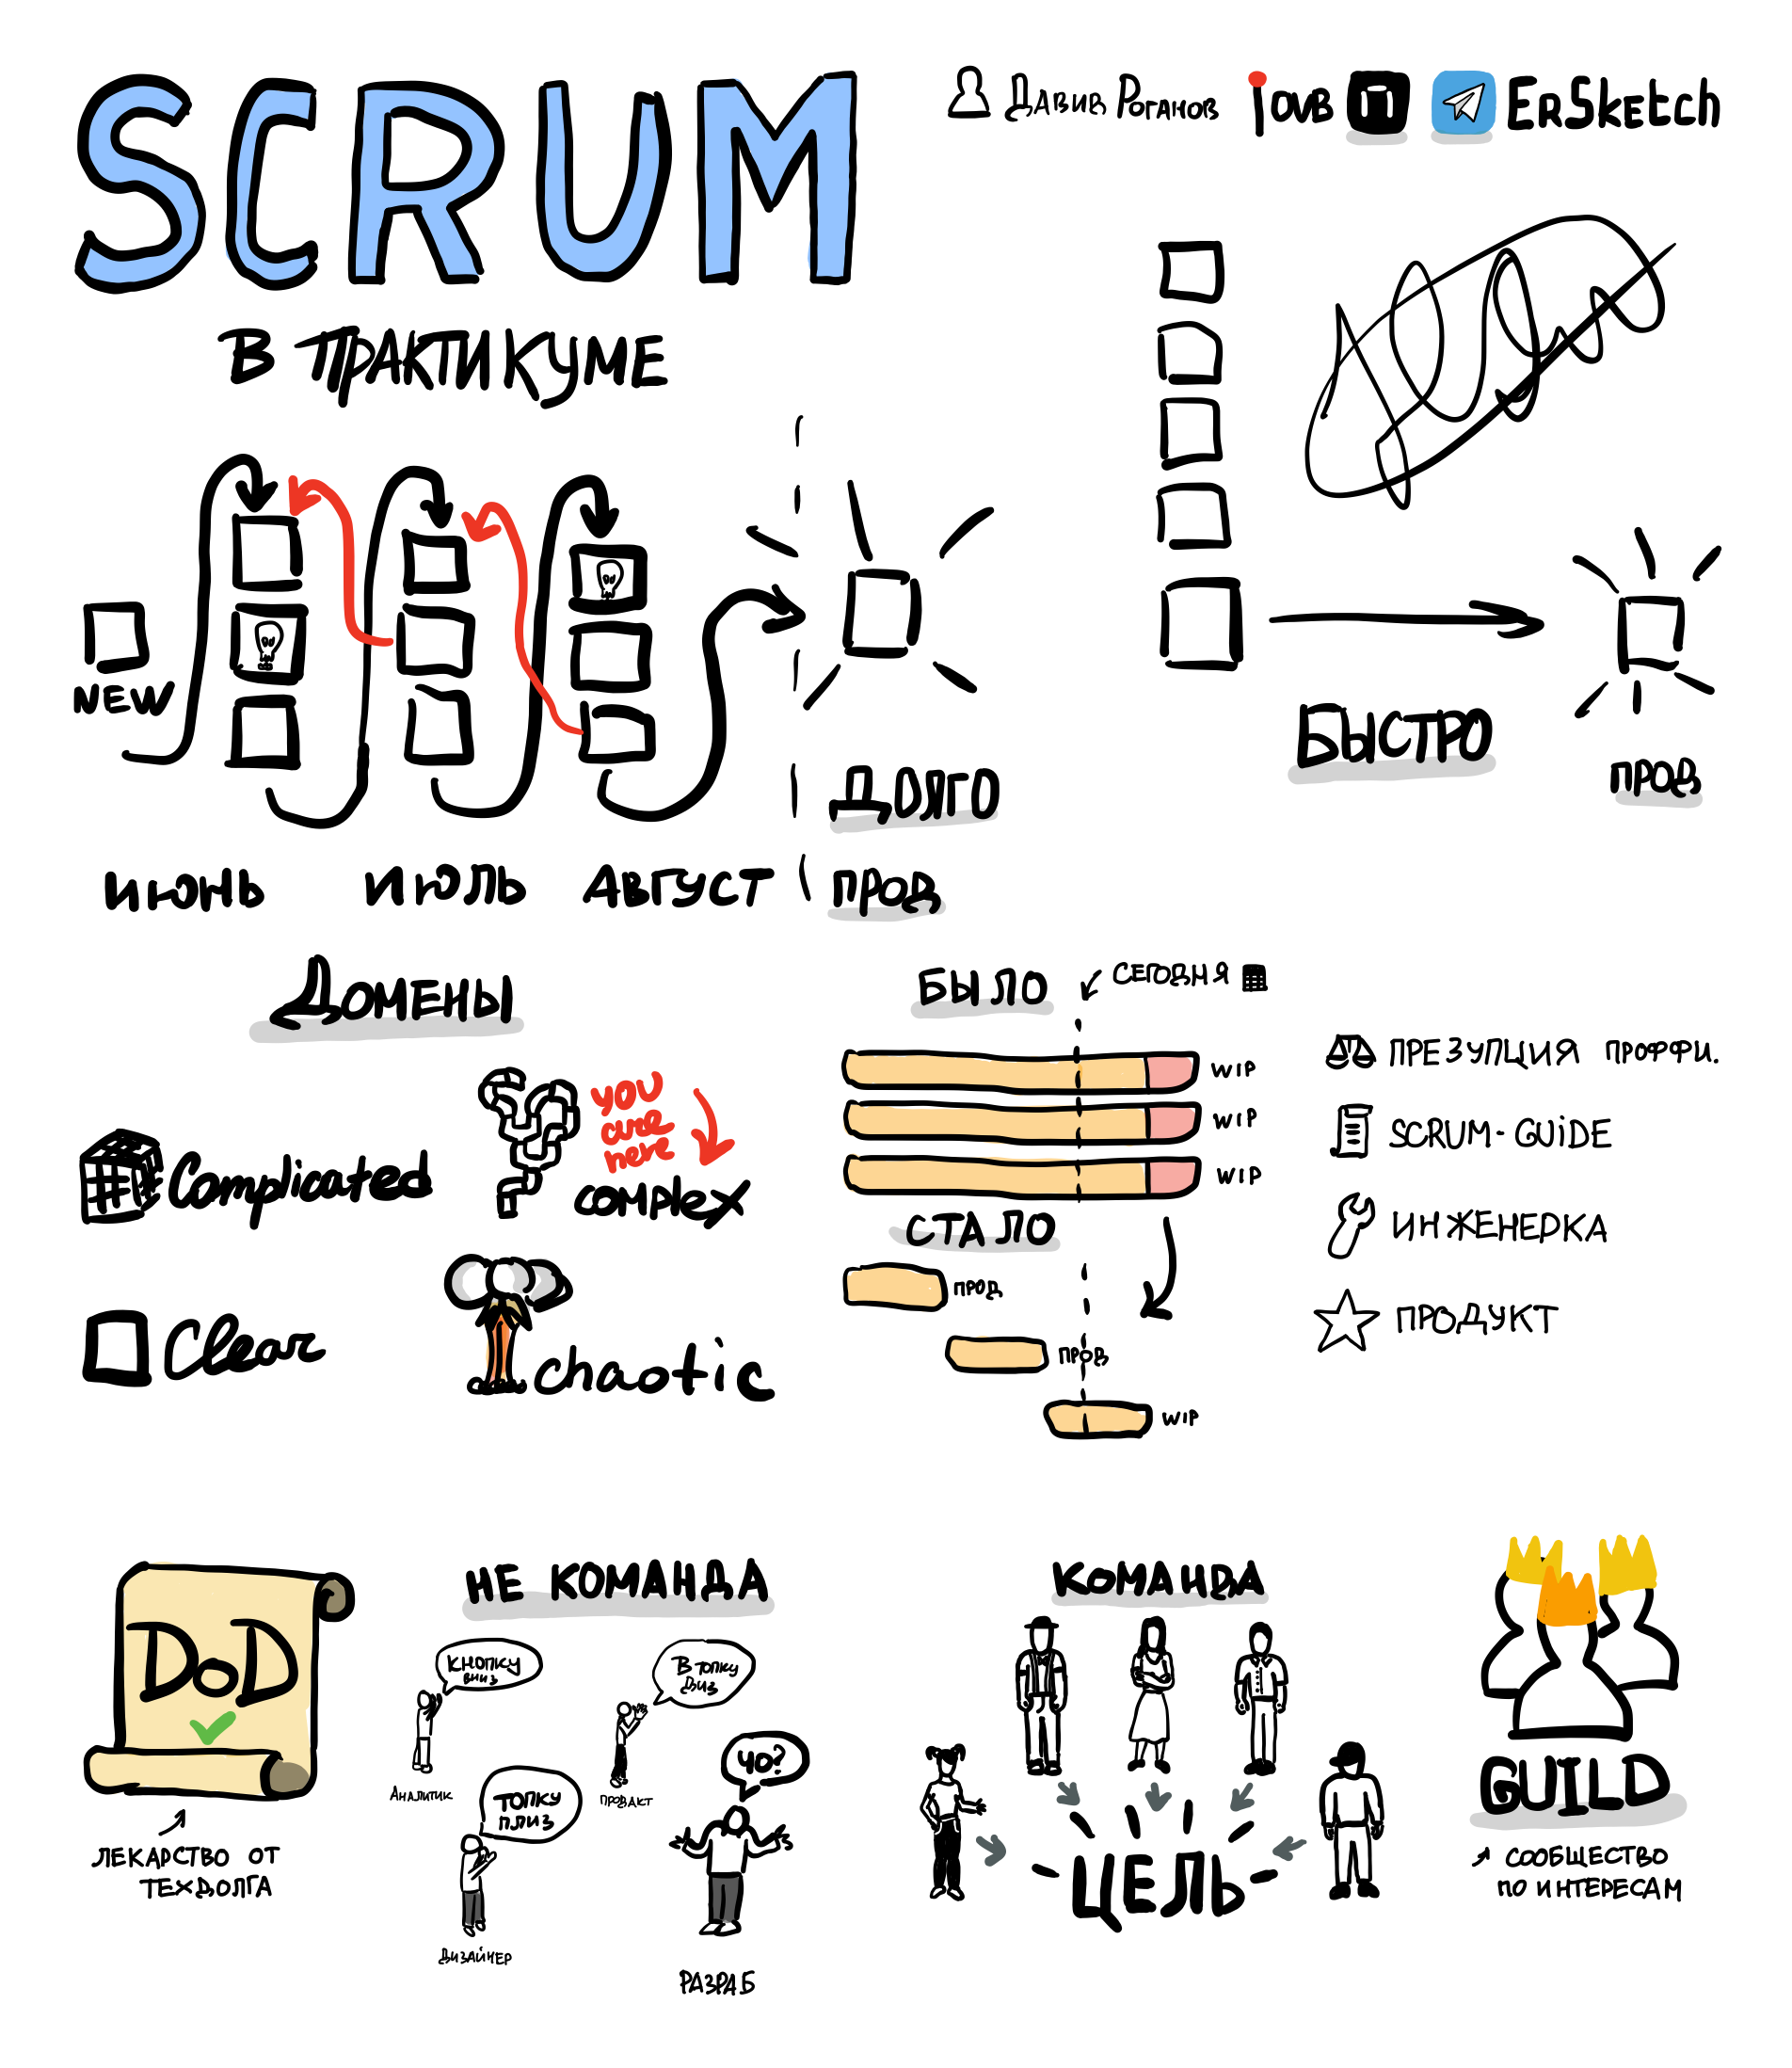 SCRUM
В ПРАКТИКУМЕ
ДАВИД РОГАНОВ
ERSKETCH
NEW
ИЮНЬ
ИЮЛЬ
АВГУСТ
ДОЛГО
ПРОД
БЫСТРО
ПРОД
ДОМЕНЫ
Complicated
YOU
are
here
complex
Clear
chaotic
БЫЛО
СЕГОДНЯ
WIP
WIP
WIP
СТАЛО
ПРОД
ПРОД
WIP
ПРЕЗУПЦИЯ ПРОФФИ.
SCRUM-GUIDE
ИНЖЕНЕРКА
ПРОДУКТ
DoD
ЛЕКАРСТВО ОТ
ТЕХДОЛГА
НЕ КОМАНДА
КНОПКУ
ВНИЗ
АНАЛИТИК
В ТОПКУ
ДИЗ
ПРОДАКТ
ТОПКУ
ПЛИЗ
ДИЗАЙНЕР
ЧО?
РАЗРАБ
КОМАНДА
ЦЕЛЬ
GUILD
СООБЩЕСТВО
ПО ИНТЕРЕСАМ